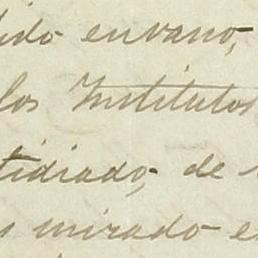 dido envano,
los Institutos
tidiado, de
s mirado e